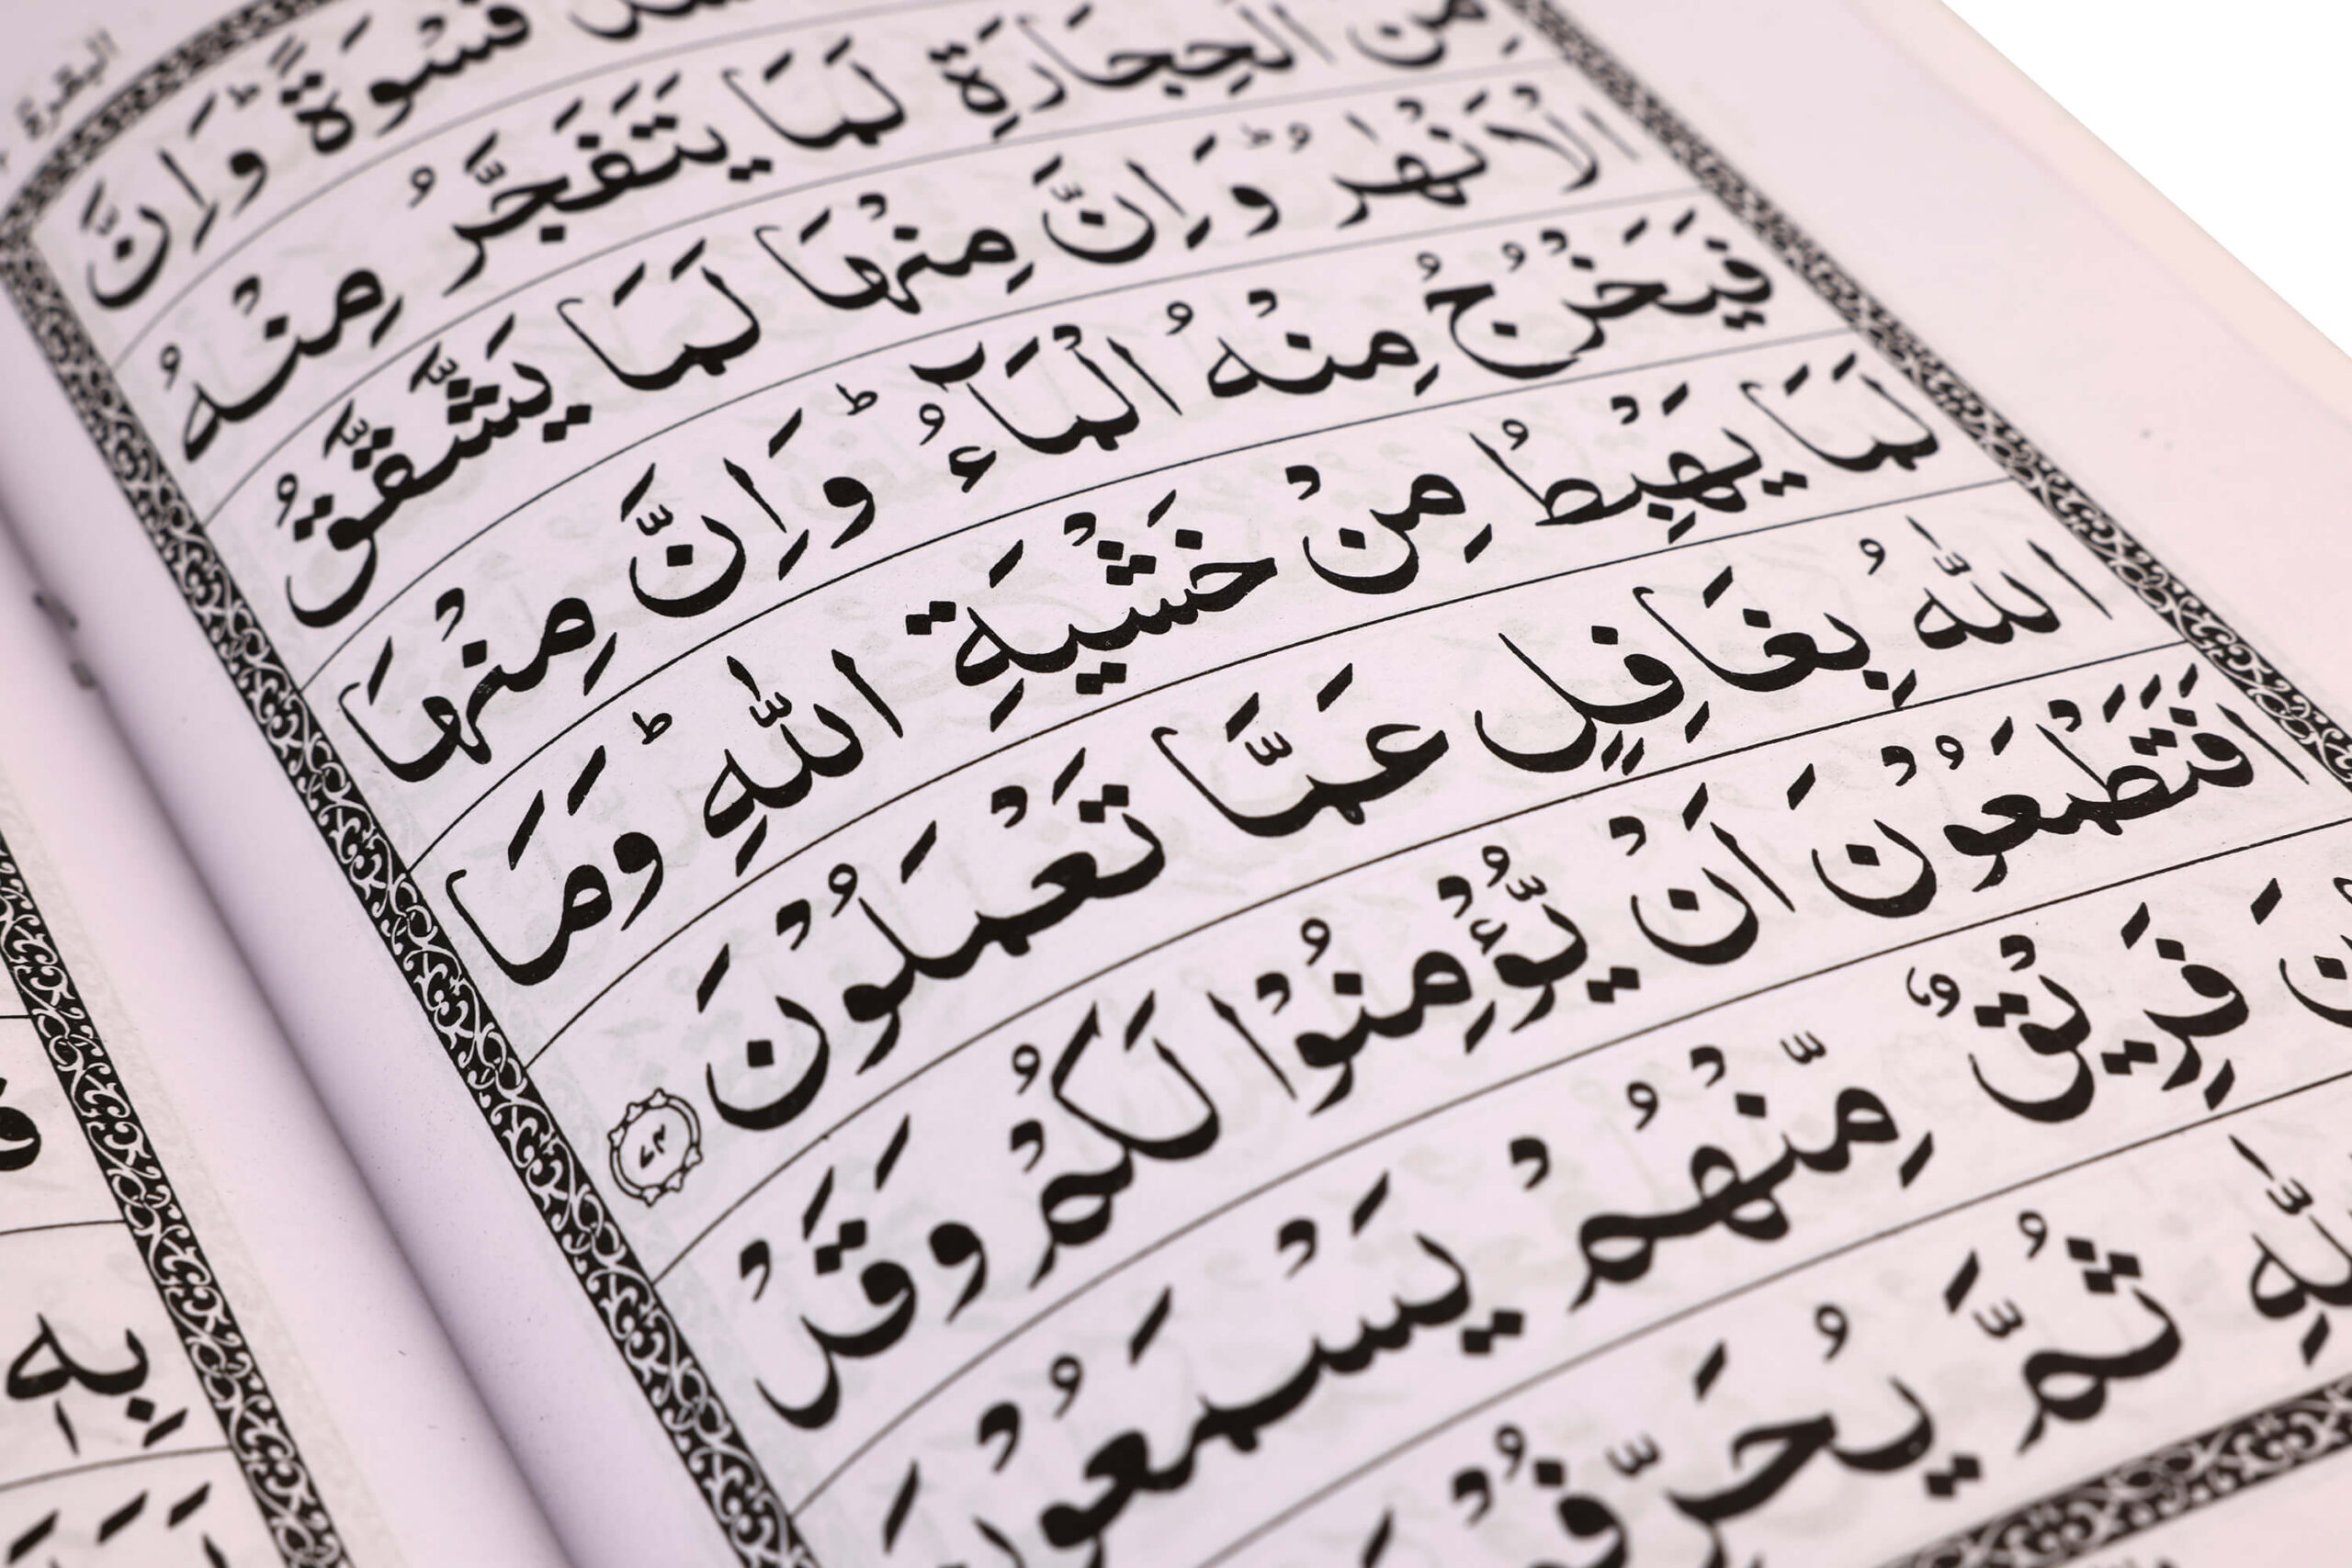 البقرة
قَسْوَةً ؕ وَاِنَّ
مِنَ الْحِجَارَةِ لَمَا يَتَفَجَّرُ مِنْهُ
الْاَنْهٰرُ ؕ وَاِنَّ مِنْهَا لَمَا يَشَّقَّقُ
فَيَخْرُجُ مِنْهُ الْمَآءُ ؕ وَاِنَّ مِنْهَا
لَمَا يَهْبِطُ مِنْ خَشْيَةِ اللّٰهِ ؕ وَمَا
اللّٰهُ بِغَافِلٍ عَمَّا تَعْمَلُوْنَ ﴿۷۴﴾
اَفَتَطْمَعُوْنَ اَنْ يُّؤْمِنُوْا لَكُمْ وَقَدْ
فَرِيْقٌ مِّنْهُمْ يَسْمَعُوْنَ
ثُمَّ يُحَرِّفُوْ
بِهٖ